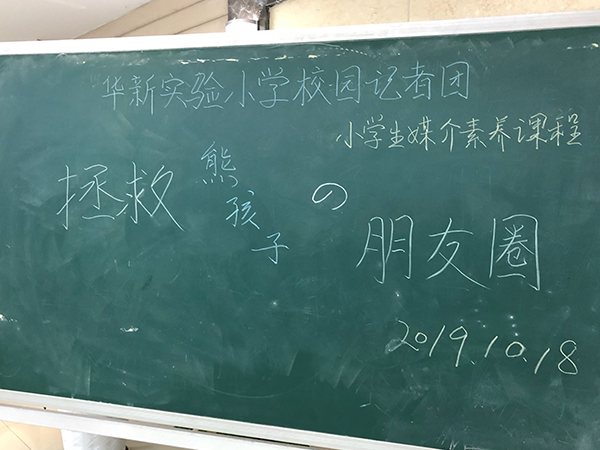 华新实验小学校园记者团
小学生媒介素养课程
拯救熊孩子の朋友圈
2019.10.18